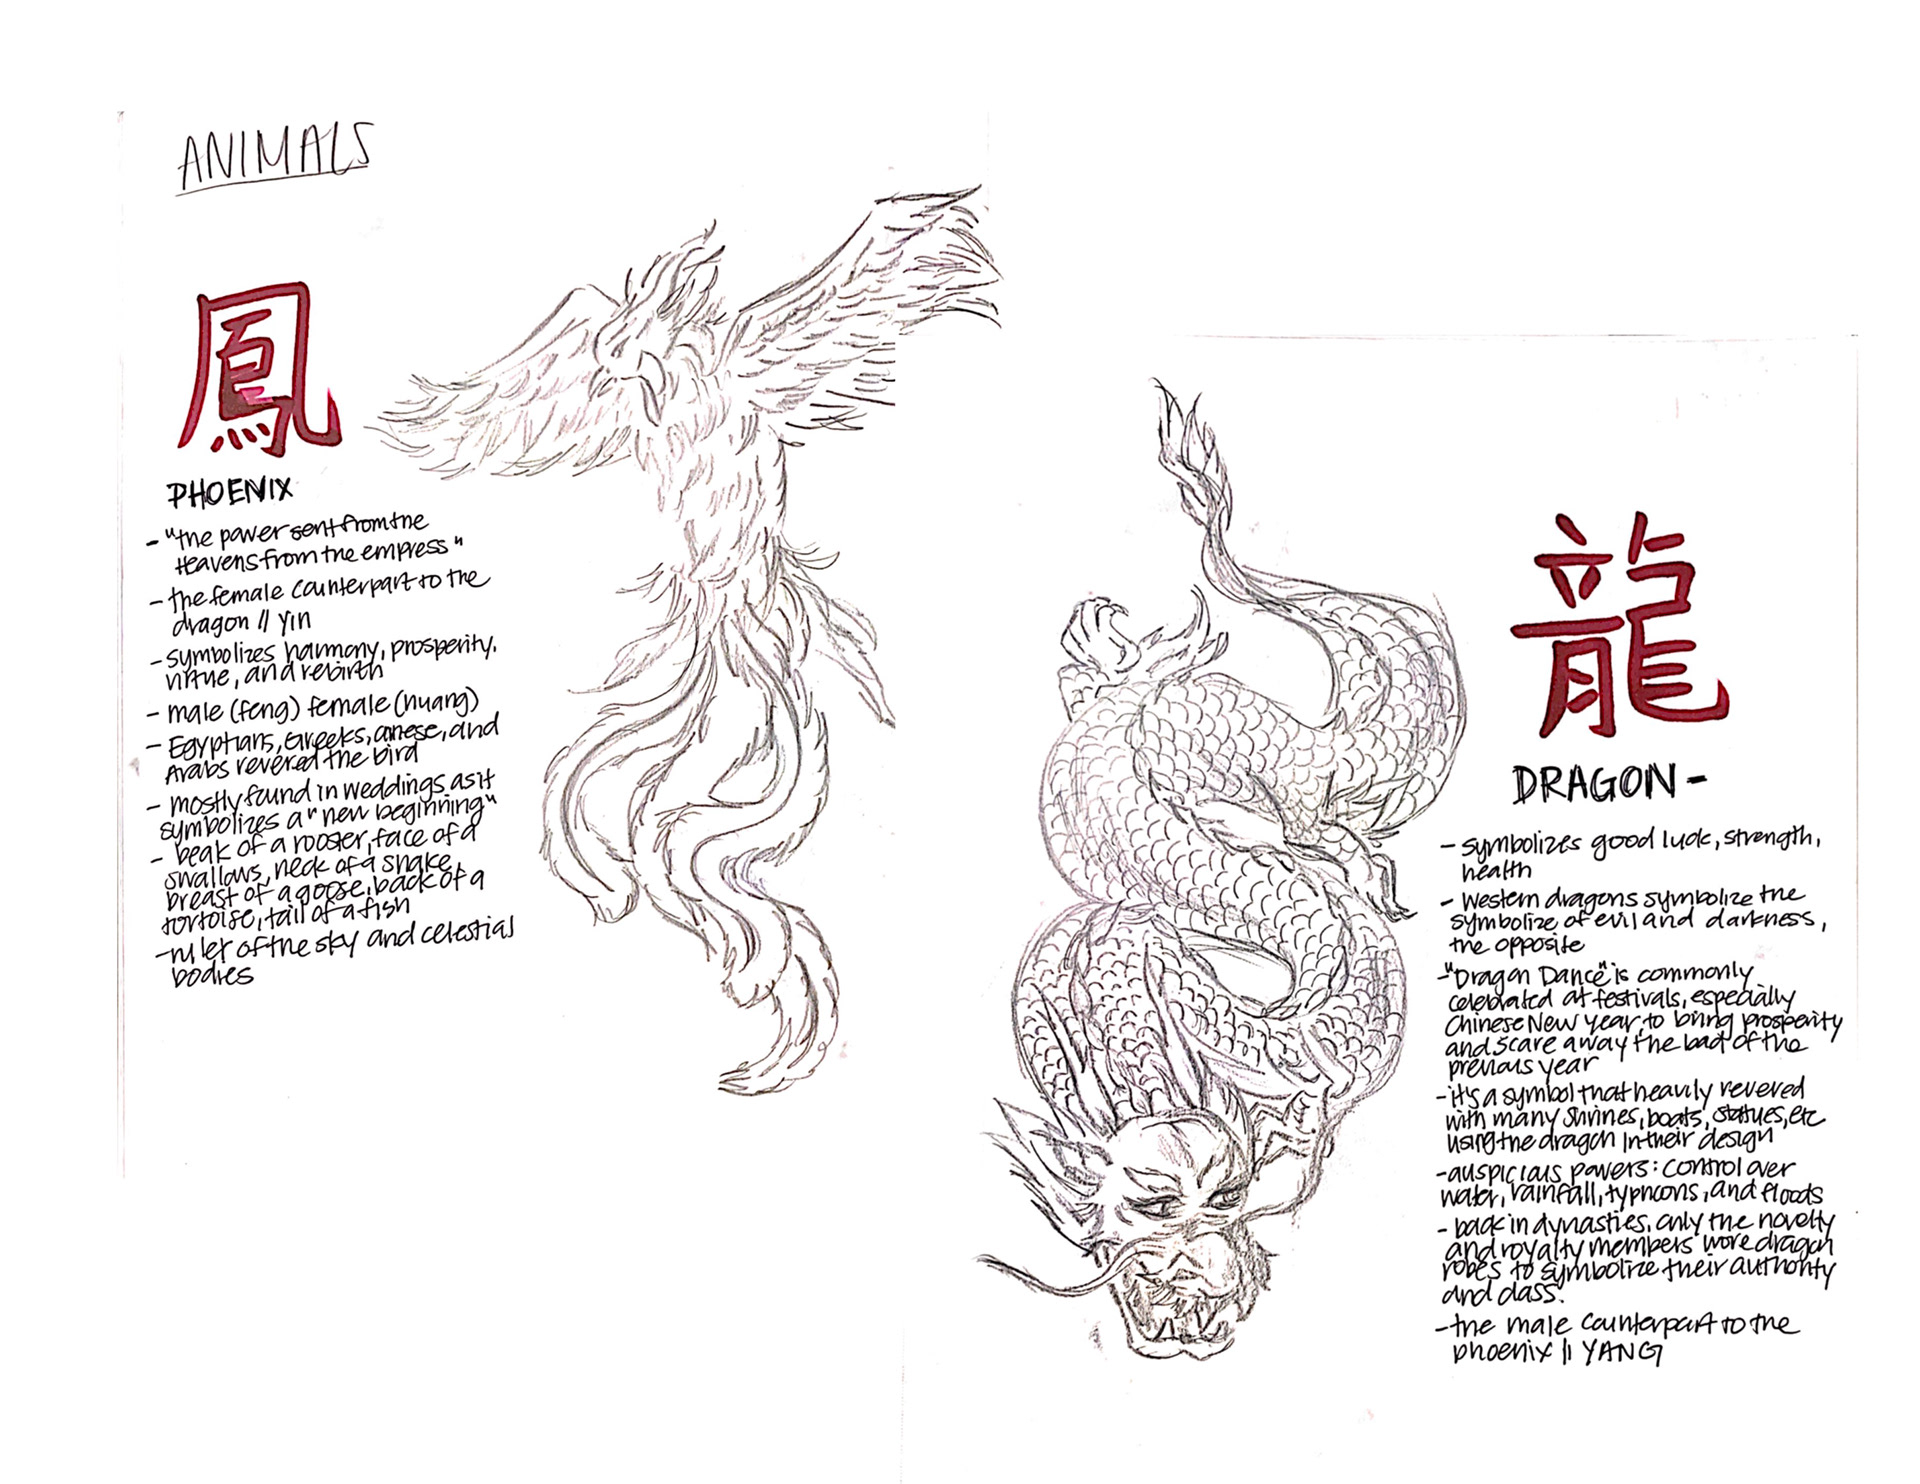 ANIMALS
鳳
PHOENIX
- "the power sent from the
Heavens from the empress"
- the female counterpart to the
dragon // Yin
- symbolizes harmony, prosperity,
virtue, and rebirth
- male (feng) female (huang)
- Egyptians, Greeks, Chinese, and
Arabs revered the bird
- mostly found in weddings as it
symbolizes a "new beginning"
- beak of a rooster, face of a
swallows, neck of a snake,
breast of a goose, back of a
tortoise, tail of a fish
- ruler of the sky and celestial
bodies
龍
DRAGON -
- symbolizes good luck, strength,
health
- western dragons symbolize the
symbolize of evil and darkness,
the opposite
- "Dragon Dance" is commonly
celebrated at festivals, especially
Chinese New Year, to bring prosperity
and scare away the bad of the
previous year
- it's a symbol that heavily revered
with many shrines, boats, statues, etc
using the dragon in their design
- auspicious powers: control over
water, rainfall, typhoons, and floods
- back in dynasties, only the novelty
and royalty members wore dragon
robes to symbolize their authority
and class.
- the male counterpart to the
phoenix // YANG